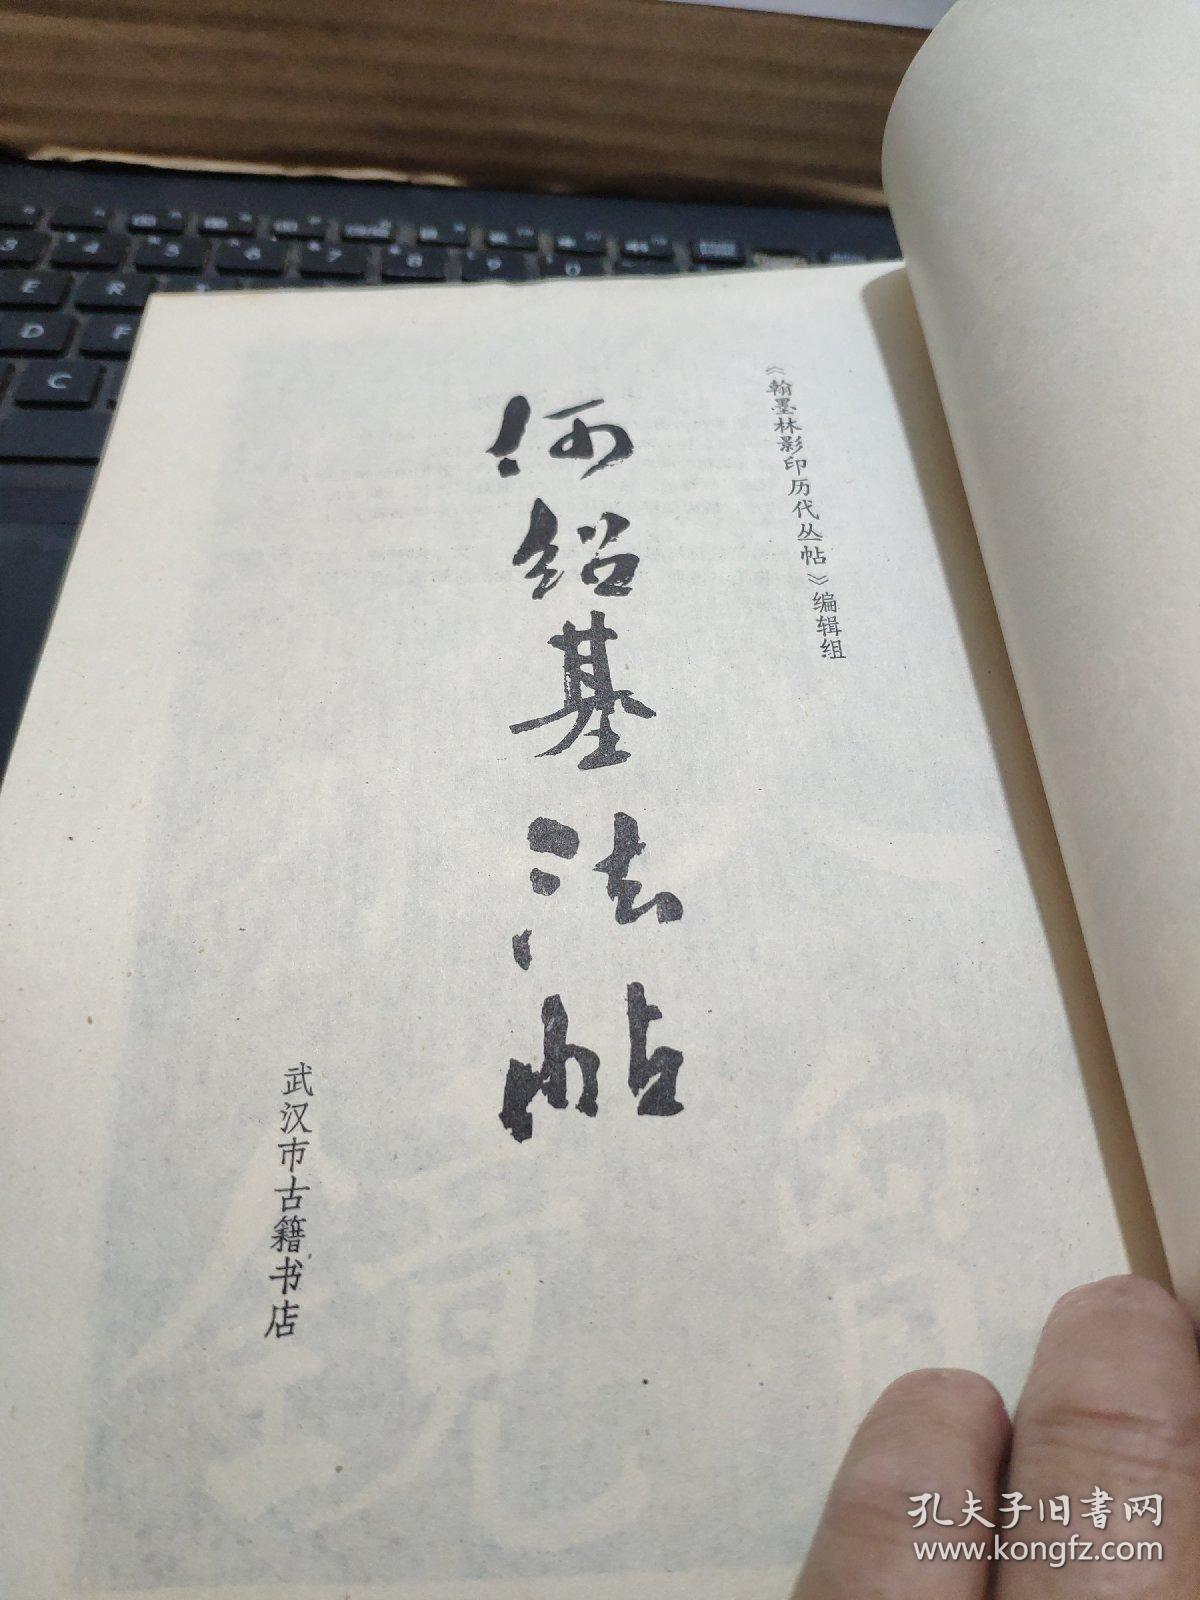 《翰墨林影印历代丛帖》编辑组
何绍基法帖
武汉市古籍书店
3 4 5 6 7 8 9 0
E R
D F
C
孔夫子旧书网
www.kongfz.com